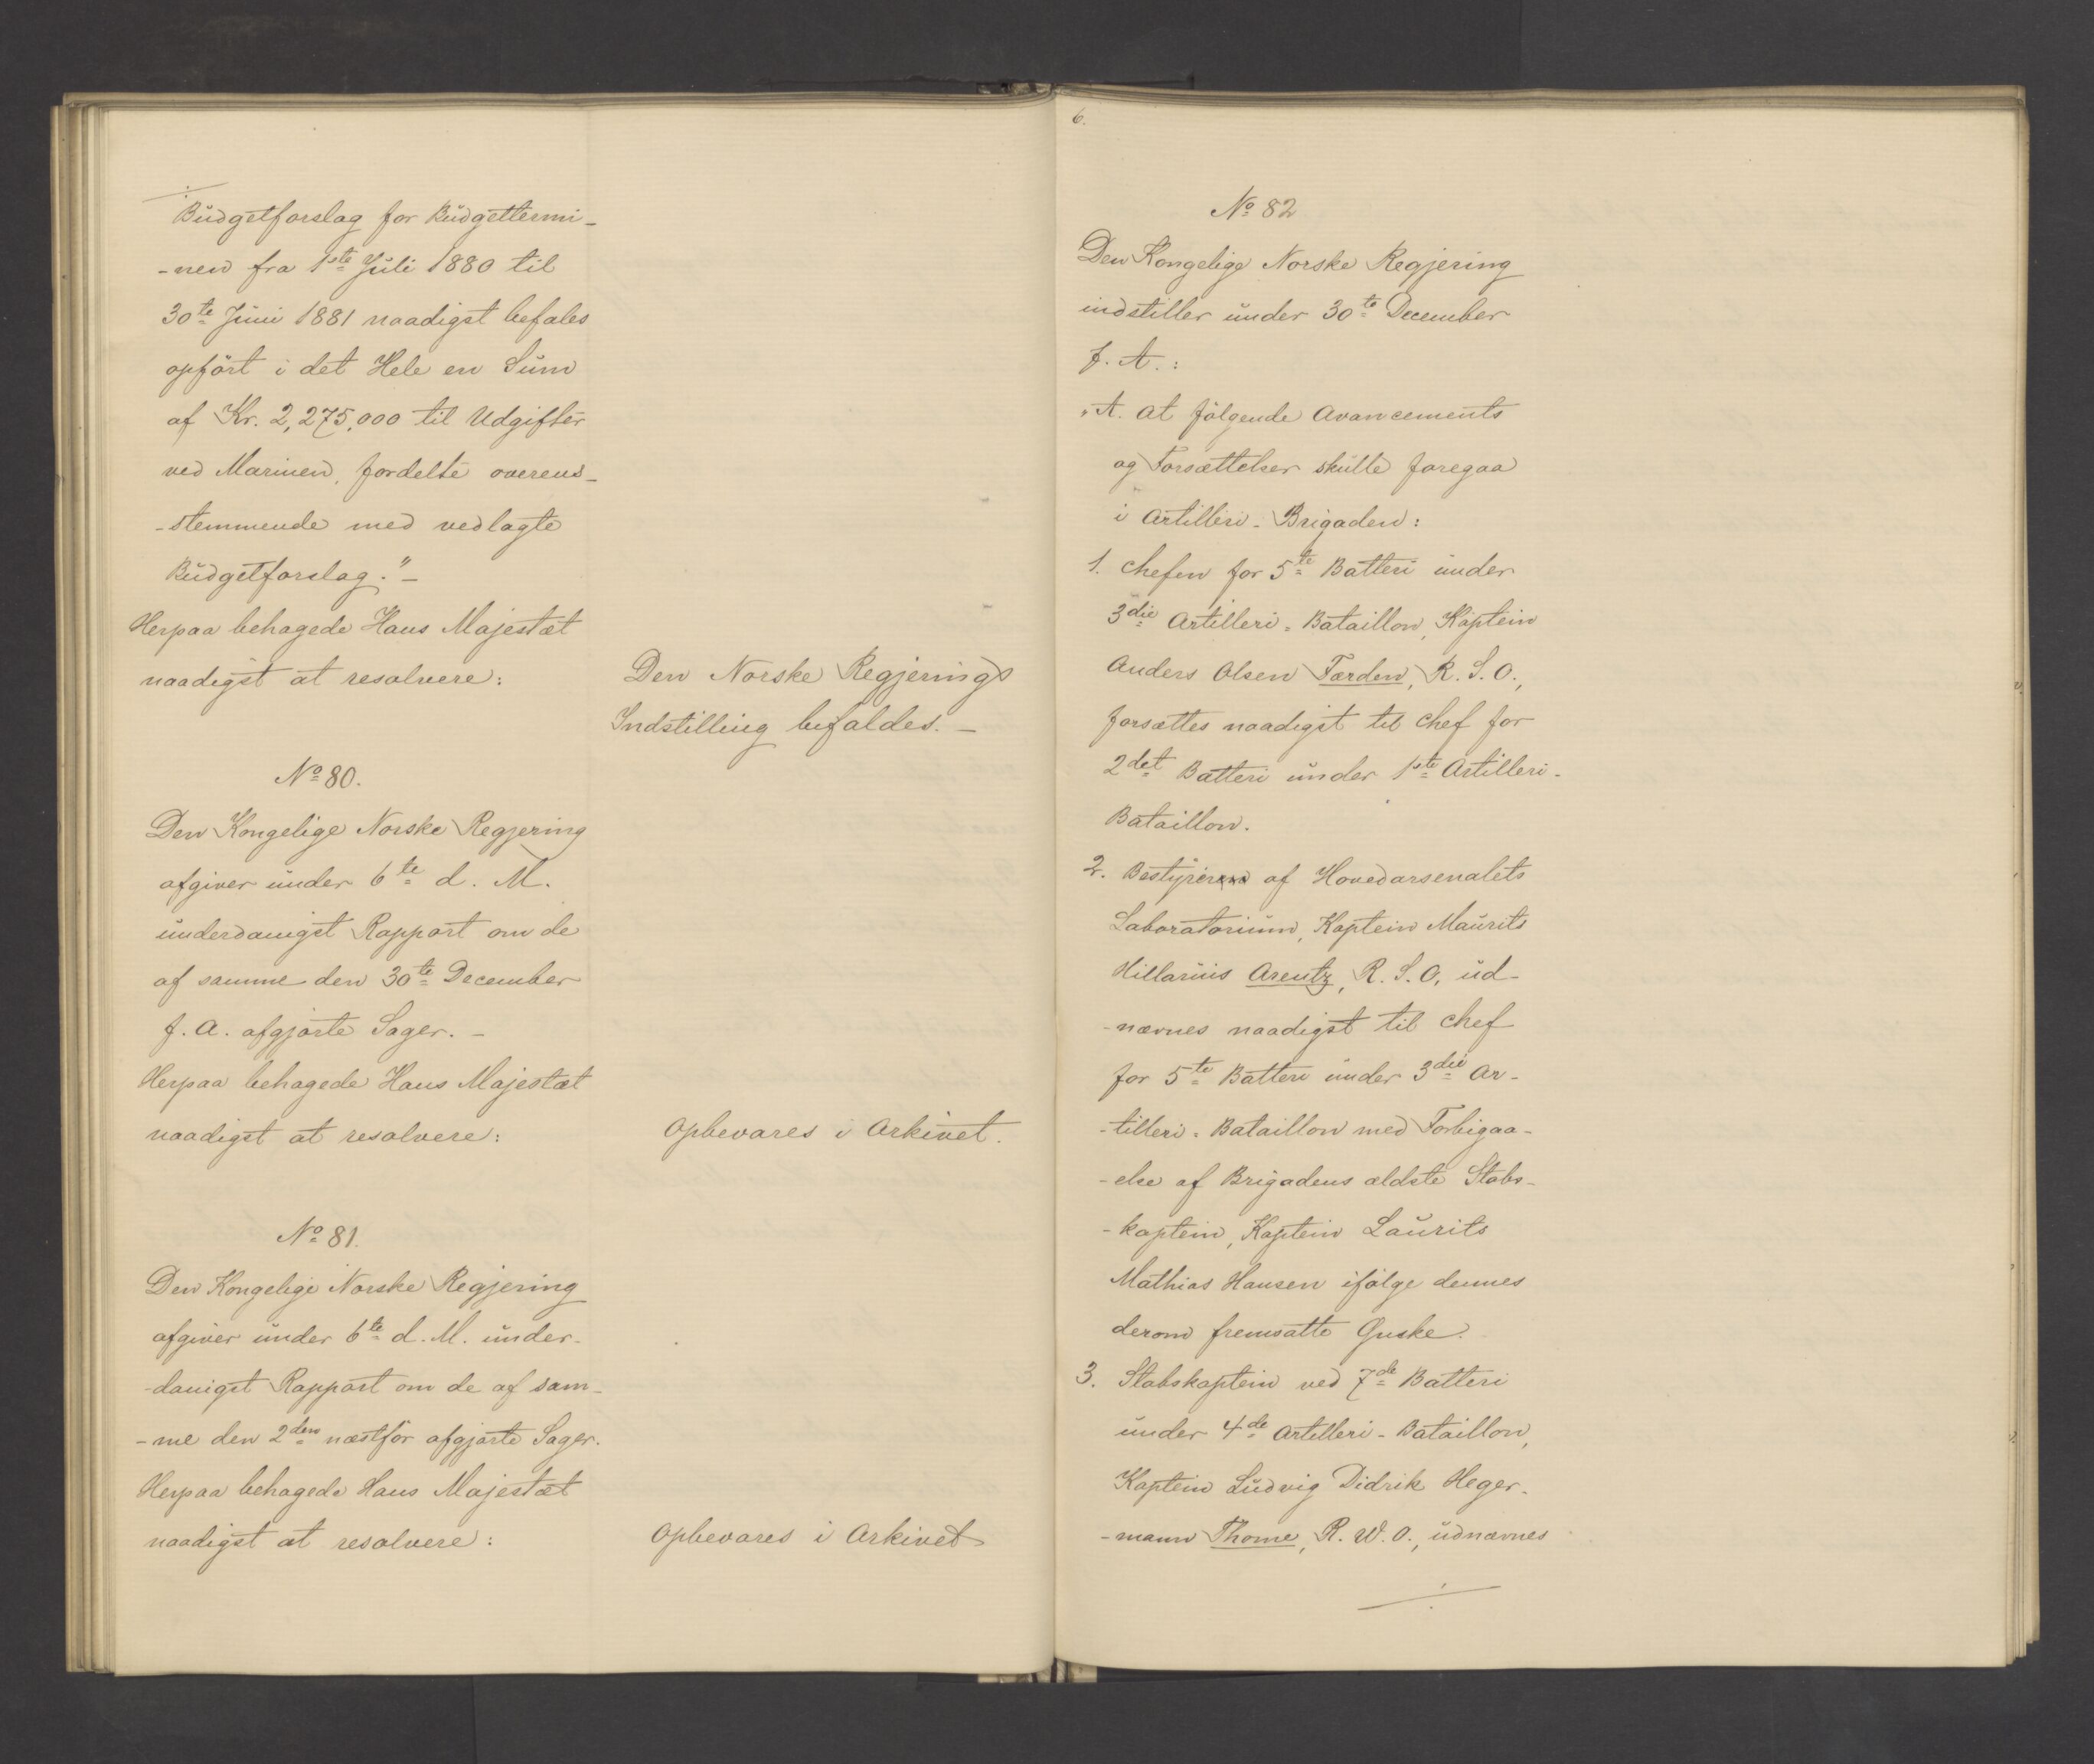 Budgetforslag for Budgettermi-
-nen fra 1ste Juli 1880 til
30te Juni 1881 naadigst befales
opført i det Hele en Sum
af Kr. 2,275,000 til Udgifter
ved Marinen, fordelte overens-
-stemmende med vedlagte
Budgetforslag."-
Herpaa behagede Hans Majestæt
naadigst at resolvere:
Den Norske Regjerings
Indstilling bifaldes. -
No 80.
Den Kongelige Norske Regjering
afgiver under 6te d. M.
underdanigst Rapport om de
af samme den 30te December
f. A. afgjorte Sager. -
Herpaa behagede Hans Majestæt
naadigst at resolvere:
Opbevares i Arkivet.
No 81.
Den Kongelige Norske Regjering
afgiver under 6te d. M. under-
-danigst Rapport om de af sam-
-me den 2den næstfør afgjorte Sager.
Herpaa behagede Hans Majestæt
naadigst at resolvere:
Opbevares i Arkivet
6.
No 82
Den Kongelige Norske Regjering
indstiller under 30te December
f. A.:
"A. at følgende Avancements
og Forsættelser skulle foregaa
i Artilleri-Brigaden:
1. Chefen for 5te Batteri under
3die Artilleri-Bataillon, Kaptein
Anders Olsen Færden, R. S. O.,
forsættes naadigst til Chef for
2det Batteri under 1ste Artilleri-
Bataillon.
2. Bestyreren af Hovedarsenalets
Laboratorium, Kaptein Maurits
Hillarius Arentz, R. S. O, ud-
-nævnes naadigst til Chef
for 5te Batteri under 3die Ar-
-tilleri-Bataillon med Forbigaa-
-else af Brigadens ældste Stabs-
-kaptein, Kaptein Laurits
Mathias Hansen ifølge dennes
derom fremsatte Ønske.
3. Stabskaptein ved 7de Batteri
under 4de Artilleri-Bataillon,
Kaptein Ludvig Didrik Heger-
-mann Thome, R. W. O., udnævnes